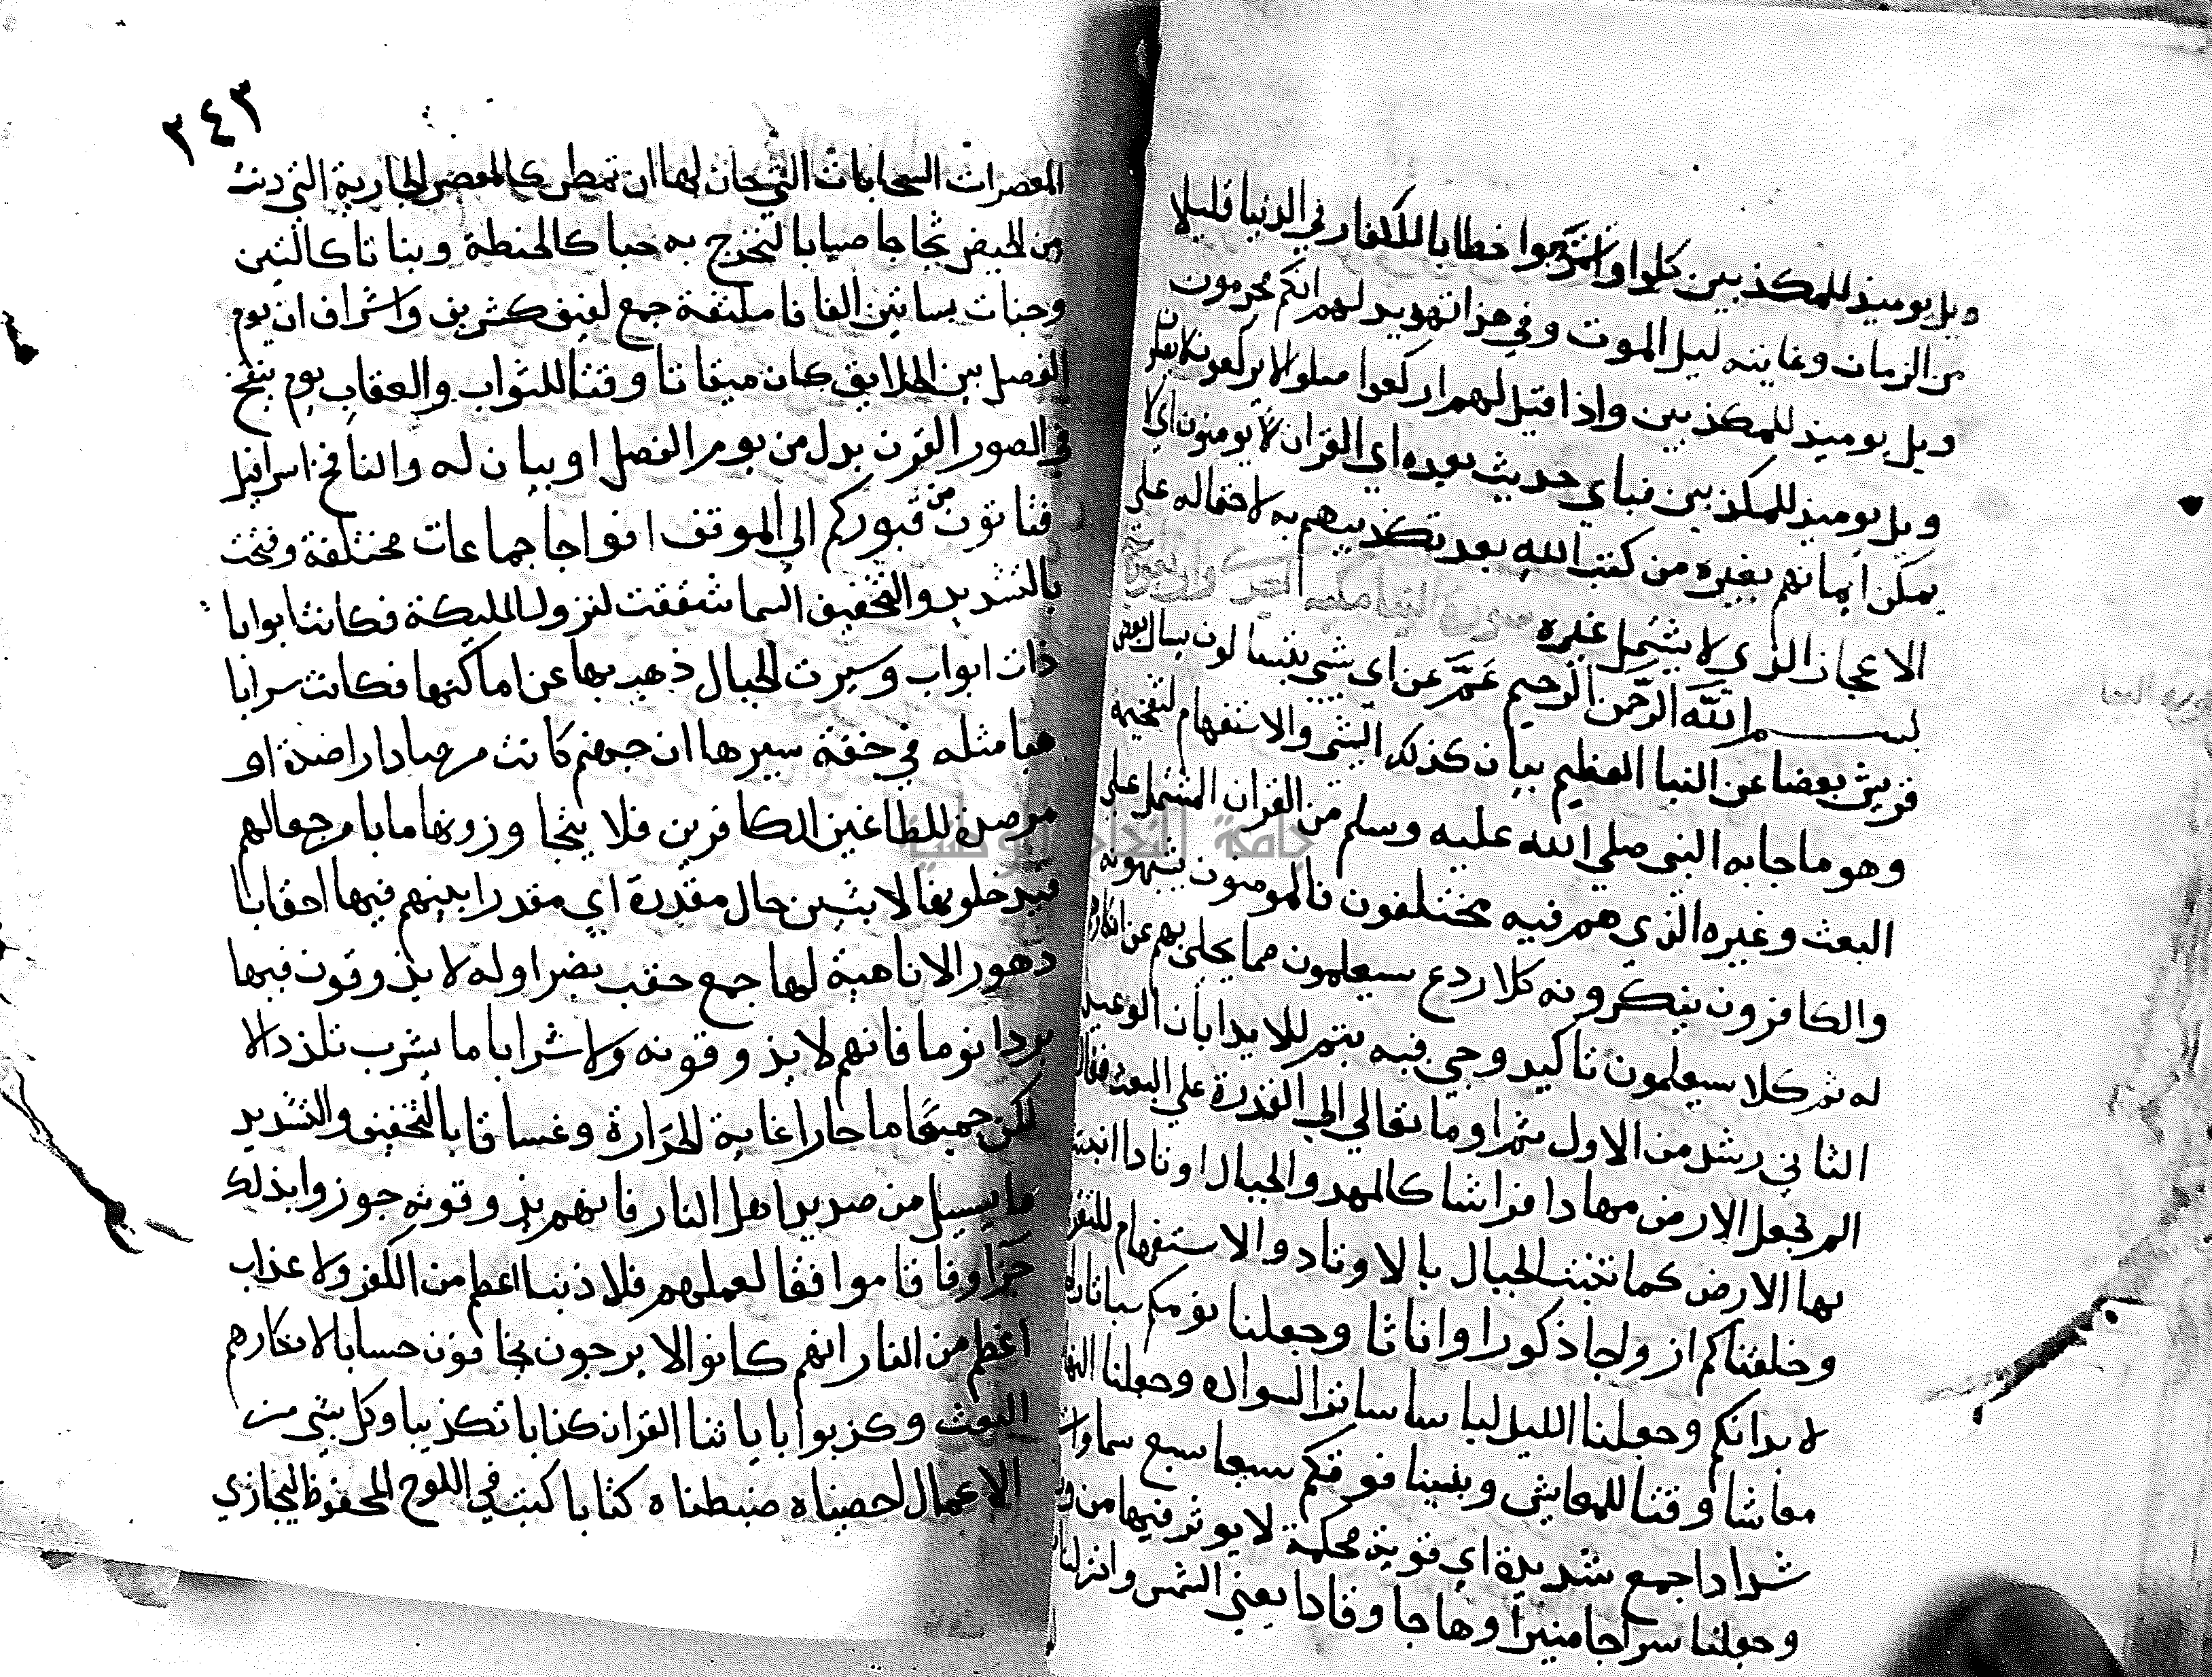 ويل يوميذ للمكذبين كلوا واشربوا خطابا للكفار في الدنيا قليلا
من الزمان وغايته ليل الموت وفي هزا تهديد لهم انكم مجرمون
ويل يوميذ للمكذبين واذا قيل لهم اركعوا صلوا لا يركعون لا يصلون
ويل يوميذ للمكذبين فباي حديث بعده اي القران لا يومنون اي لا
يمكن ايمانهم بغيره من كتب الله بعد تكذيبهم به لاحتماله على
الاعجاز الذي لا يشتمل غيره سورة النبا مكية احدى واربعون اية
بسم الله الرحمن الرحيم عم عن اي شي يتسالون يسال بعض
قريش بعضا عن النبا العظيم بيان كذلك الشي والاستفهام لتفخيمه
وهو ما جا به النبي صلي الله عليه وسلم من القران المشتمل على
البعث وغيره الذي هم فيه مختلفون فالمومنون يثبتونه
والكافرون ينكرونه كلا ردع سيعلمون ما يحل بهم عن انكارهم
له ثم كلا سيعلمون تاكيد وجي فيه بثم للايدا بان الوعيد
الثاني رشد من الاول ثم اوما تعالي الي القدرة علي البعث فقال
الم نجعل الارض مهادا فراشا كالمهد والجبال اوتادا اثبتت
بها الارض كما تثبت الجبال بالاوتاد والاستفهام للتقرير
وخلقناكم ازواجا ذكورا واناثا وجعلنا نومكم سباتا راحة
لابدانكم وجعلنا الليل لباسا ساترا لسواده وجعلنا النهار
معاشا وقتا للمعايش وبنينا فوقكم سبعا سبع سماوات
شدادا جمع شديدة اي قوية محكمة لا يوثر فيها مرور
وجعلنا سراجا منيرا وهاجا وقادا يعني الشمس وانزلنا من
٢٤٣
المعصرات السحابات التي حان لها ان تمطر كالمعصر الجارية التي دنت
من الحيض ثجاجا صبابا لنخرج به حبا كالحنطة ونباتا كالتين
وجنات بساتين الفافا ملتفة جمع لفيف كشريف واشراف ان يوم
الفصل بين الخلايق كان ميقاتا وقتا للثواب والعقاب يوم ينفخ
في الصور القرن بدل من يوم الفصل او بيان له والنافخ اسرافيل
فتاتون من قبوركم الي الموقف افواجا جماعات مختلفة وفتحت
بالتشديد والتخفيف السما شققت لنزول المليكة فكانت ابوابا
ذات ابواب وسيرت الجبال ذهب بها عن اماكنها فكانت سرابا
هبا مثله في خفة سيرها ان جهنم كانت مرصادا راصدة او
مرصدة للطاغين الكافرين فلا يتجاوزونها مابا مرجعا لهم
فيدخلونها لابثين حال مقدرة اي مقدرا لبثهم فيها احقابا
دهورا لا ناهية لها جمع حقب بضم اوله لا يذوقون فيها
بردا نوما فانهم لا يذوقونه ولا شرابا ما يشرب تلذذا الا
لكن حميما ما حارا غاية الحرارة وغساقا بالتخفيف والتشديد
ما يسيل من صديد اهل النار فانهم يذوقونه جوزوا بذلك
جزا وفاقا موافقا لعملهم فلا ذنب اعظم من الكفر ولا عذاب
اعظم من النار انهم كانوا لا يرجون يخافون حسابا لانكارهم
البعث وكذبوا باياتنا القران كذابا تكذيبا وكل شي من
الاعمال احصيناه ضبطناه كتابا كتب في اللوح المحفوظ ليجازي